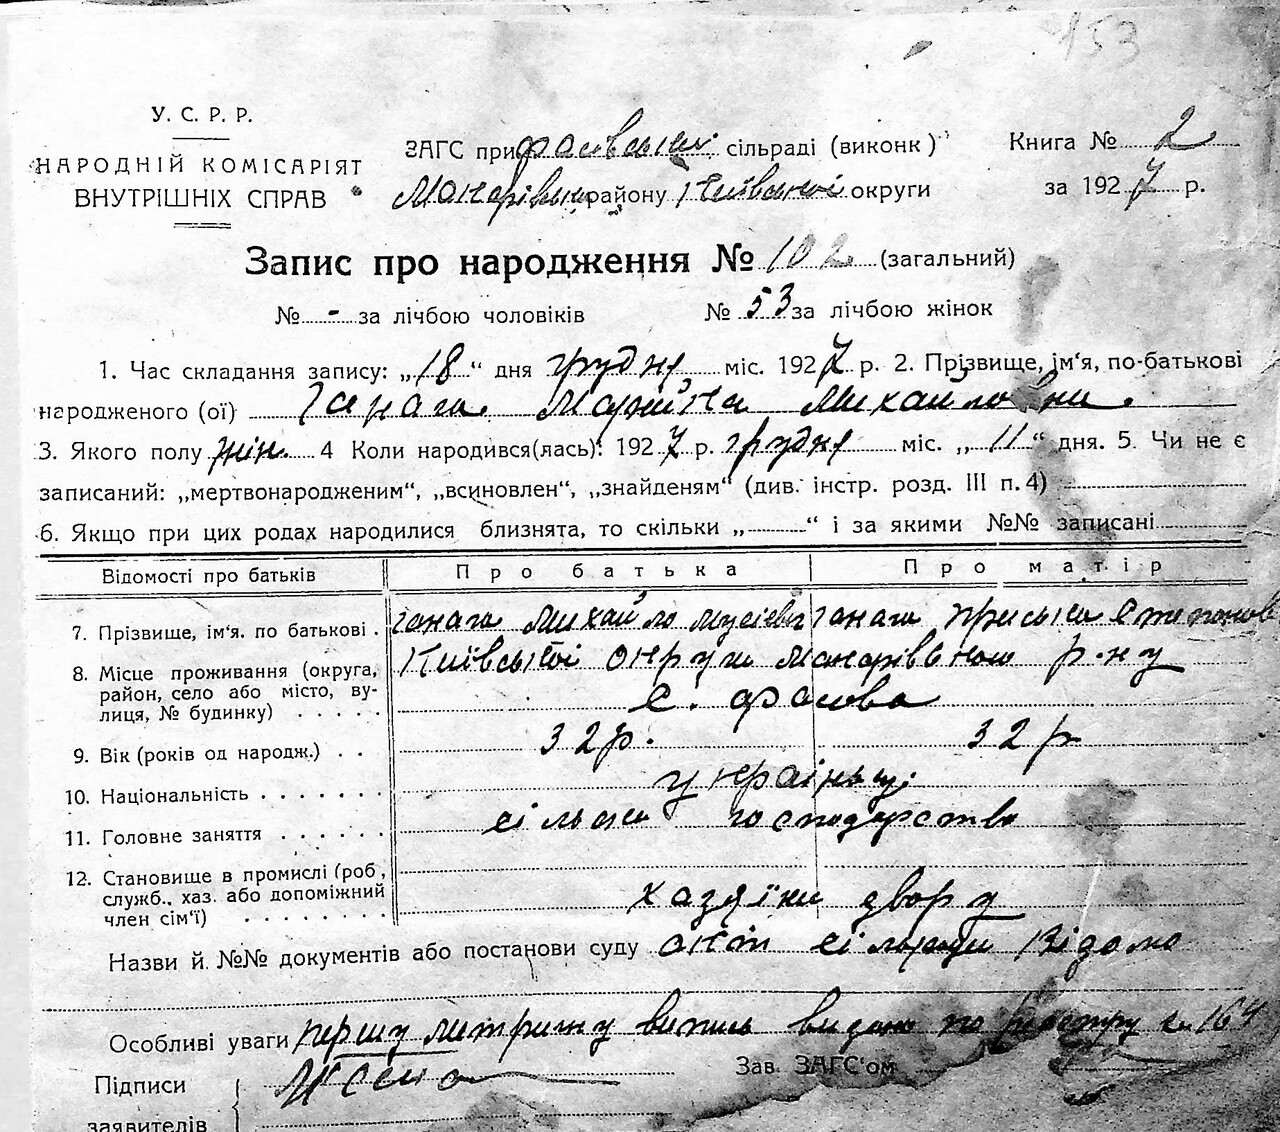 153
У. С. Р. Р.
НАРОДНІЙ КОМІСАРІЯТ
ВНУТРІШНІХ СПРАВ
ЗАГС при Фасівській сільраді (виконк)
Макарівськ району Київської округи
Книга № 2
за 1927 р.
Запис про народження № 102 (загальний)
№ - за лічбою чоловіків № 53 за лічбою жінок
1. Час складання запису: „18“ дня грудня міс. 1927 р. 2. Прізвище, ім‘я, по-батькові
народженого (ої) Ганага Марійка Михайловни.
3. Якого полу жін. 4 Коли народився(лась): 1927 р. грудня міс. „11“ дня. 5. Чи не є
записаний: „мертвонародженим“, „всиновлен“, „знайденям“ (див. інстр. розд. III п. 4)
6. Якщо при цих родах народилися близнята, то скільки „ “ і за якими №№ записані
Відомості про батьків Про батька Про матір
7. Прізвище, ім‘я. по батькові . Ганага Михайло Мусієв Ганага Приська Степанов
8. Місце проживання (округа, Київської округи Макарівського р-ну
район, село або місто, ву- с. Фасова
лиця, № будинку) . . . . .
9. Вік (років од народж.) . . 32 р. 32 р
10. Національність . . . . . . . українці
11. Головне заняття . . . . . . сільське господарство
12. Становище в промислі (роб.,
служб., хаз. або допоміжний хазяїни двору
член сім‘ї) . . . . . . . .
Назви й №№ документів або постанови суду акт сільради відомо
Особливі уваги першу метричну випись видано по реєстру № 164
Підписи Зав. ЗАГС‘ом
заявителів